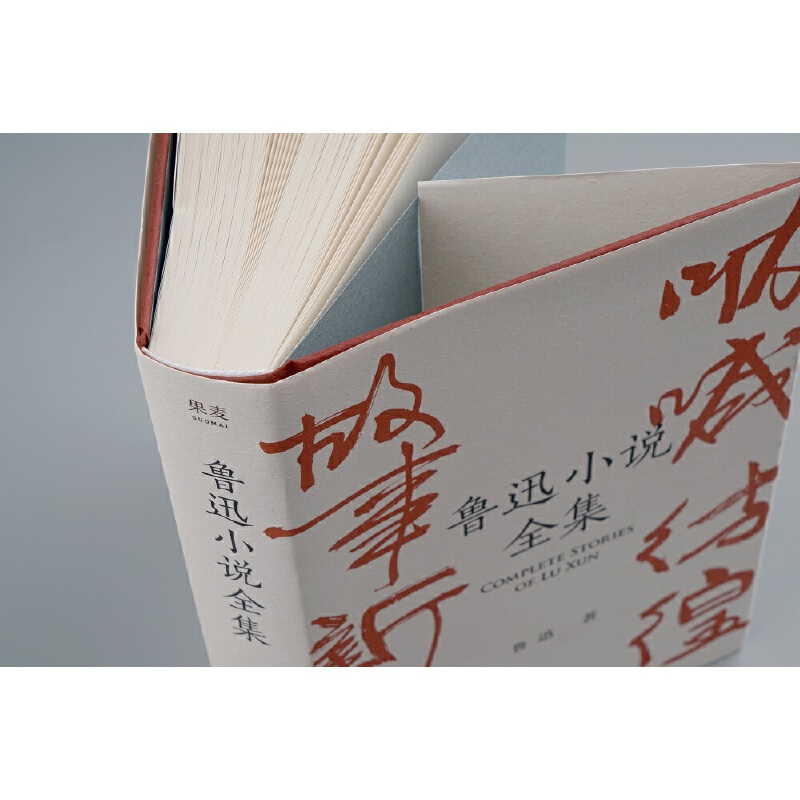 果麦
GUOMAI
鲁迅小说全集
呐喊彷徨
故事新
鲁迅小说
全集
COMPLETE STORIES
OF LU XUN
鲁迅 著